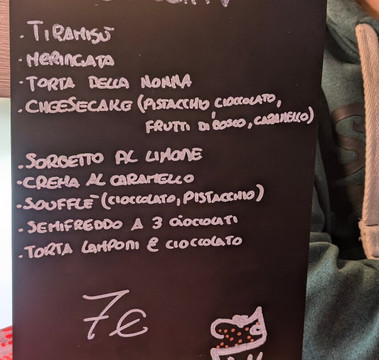 · TIRAMISÙ
· MERINGATA
· TORTA DELLA NONNA
· CHEESECAKE (PISTACCHIO CIOCCOLATO,
FRUTTI DI BOSCO, CARAMELLO)
· SORBETTO AL LIMONE
· CREMA AL CARAMELLO
· SOUFFLÈ (CIOCCOLATO, PISTACCHIO)
· SEMIFREDDO A 3 CIOCCOLATI
· TORTA LAMPONI E CIOCCOLATO
7€